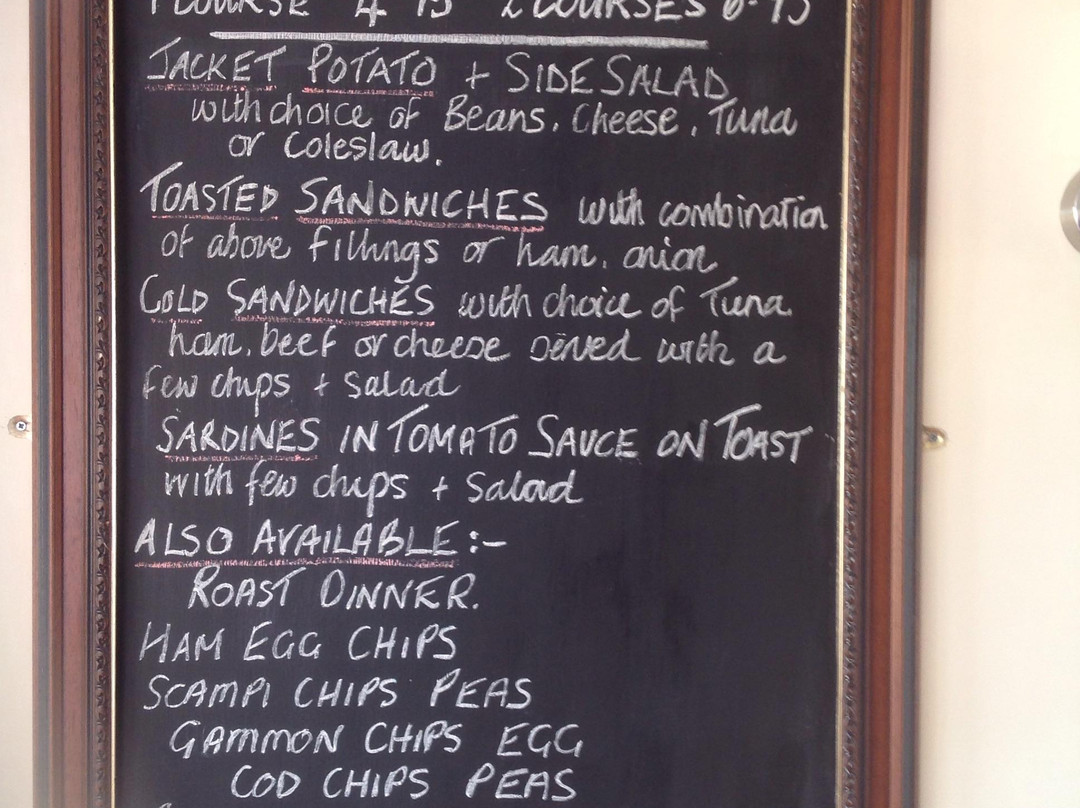 1 COURSE 4 95 2 COURSES 6-95
JACKET POTATO + SIDE SALAD
with choice of Beans, Cheese, Tuna
or Coleslaw.
TOASTED SANDWICHES with combination
of above fillings or ham, onion
COLD SANDWICHES with choice of Tuna
ham, beef or cheese served with a
few chips + Salad
SARDINES IN TOMATO SAUCE ON TOAST
with few chips + Salad
ALSO AVAILABLE :-
ROAST DINNER.
HAM EGG CHIPS
SCAMPI CHIPS PEAS
GAMMON CHIPS EGG
COD CHIPS PEAS